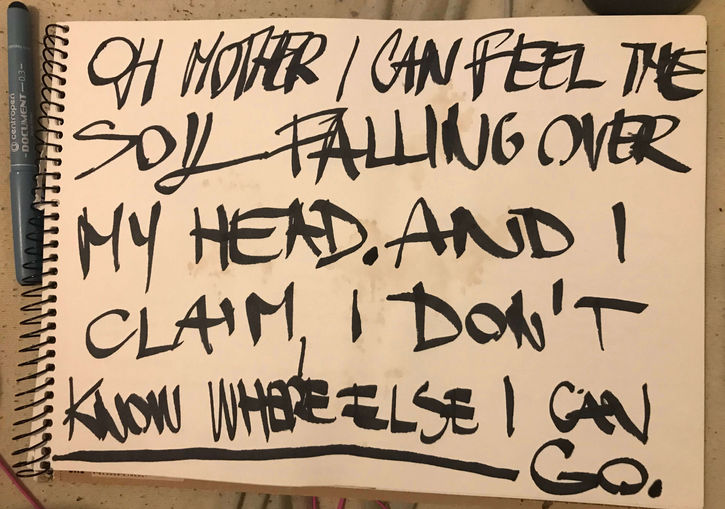 OH MOTHER I CAN FEEL THE
SOIL FALLING OVER
MY HEAD. AND I
CLAIM, I DON'T
KNOW WHERE ELSE I CAN
GO.
centropen
DOCUMENT 0.3